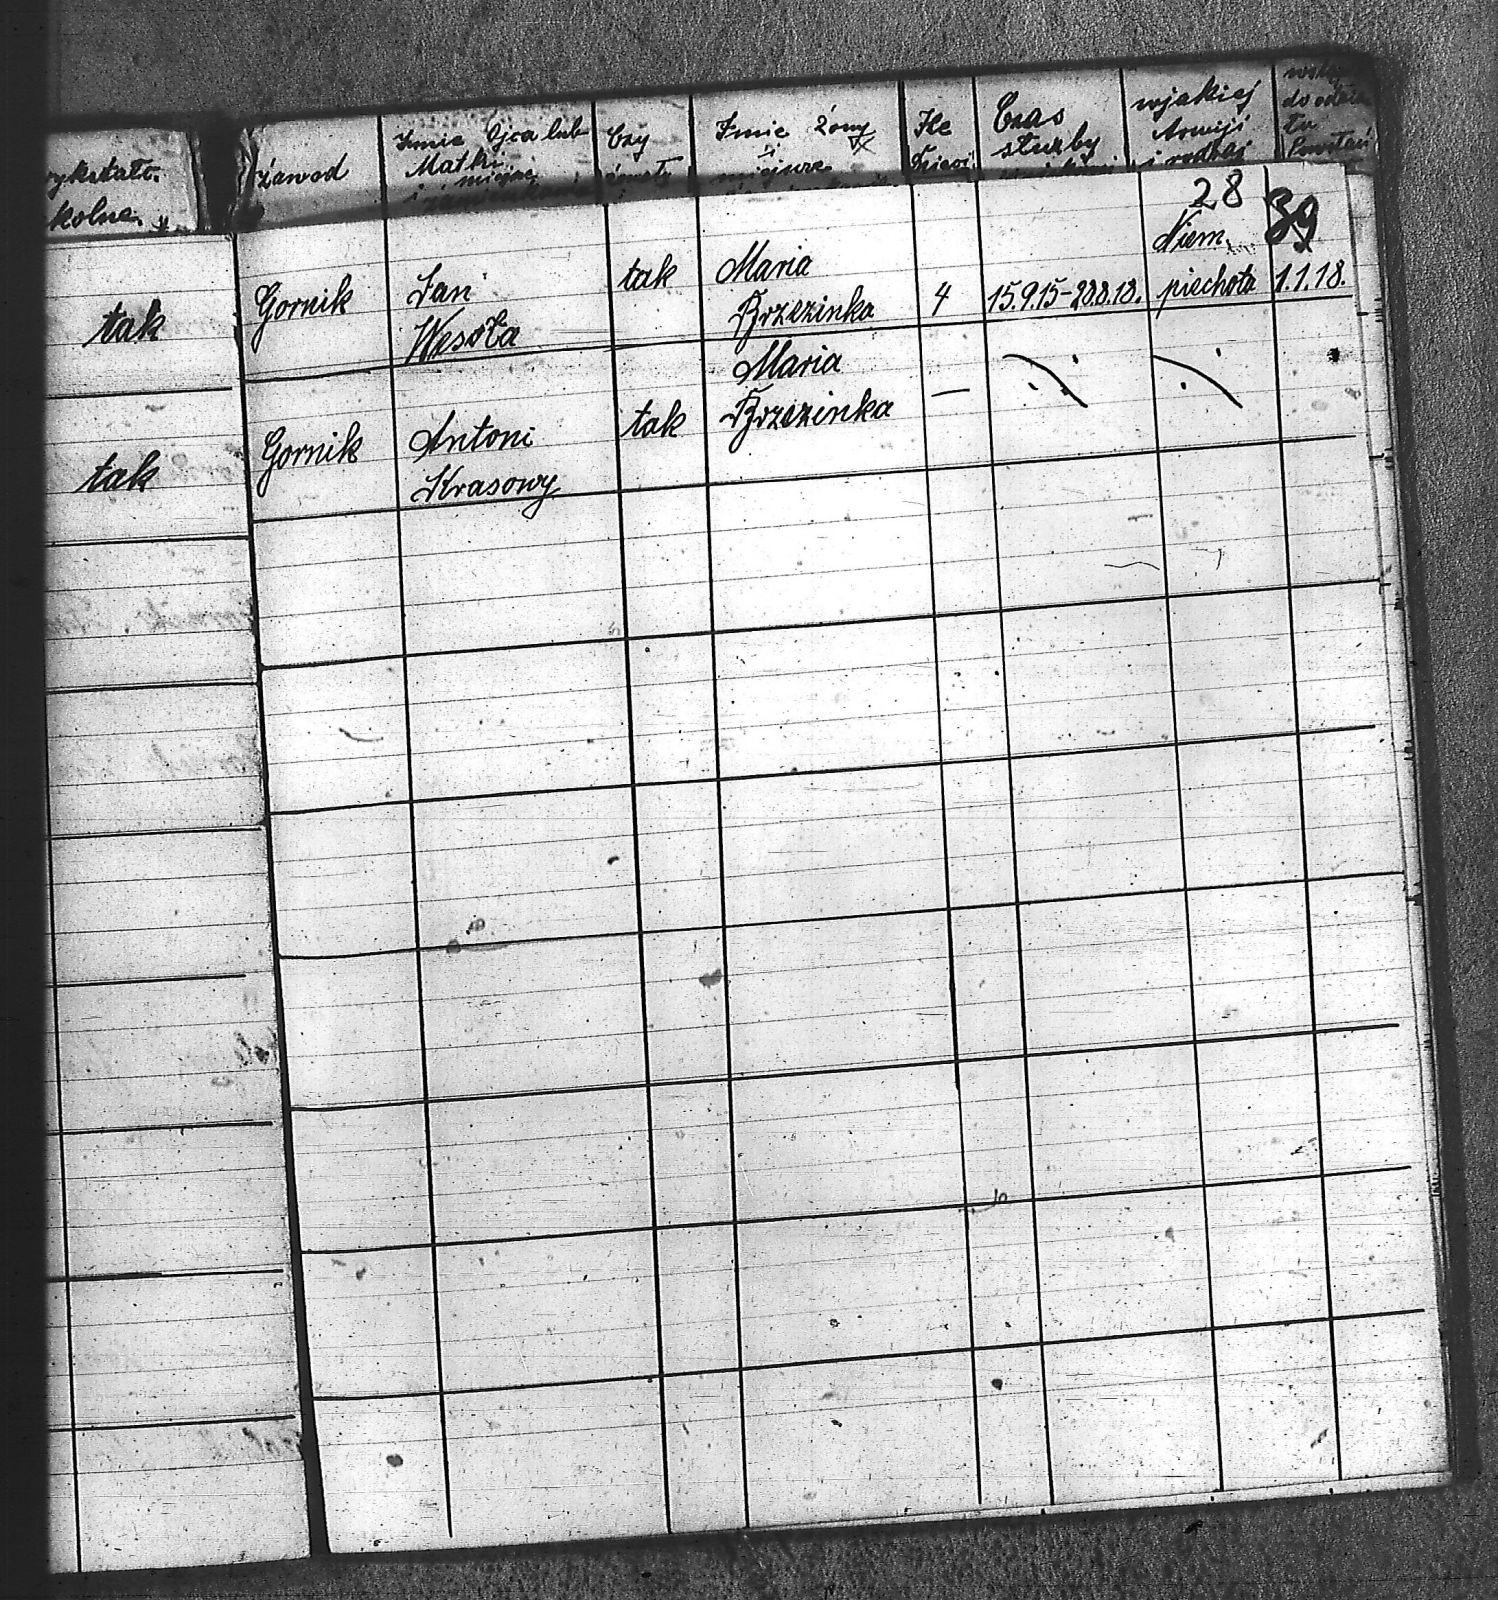 zawod
Imie Ojca lub
Matki
i miejsce
Czy
Imie Żony
i
miejsce
Ile
Dzieci
Czas
służby
wjakiej
Armiji
i rodzaj
do oddzia
łu
Powstań
kolne.
28
39
tak
Gornik
Jan
Wesoła
tak
Maria
Brzezinka
4
15.9.15-28.8.18.
Niem.
piechota
1.1.18.
tak
Gornik
Antoni
Krasowy
tak
Maria
Brzezinka
—